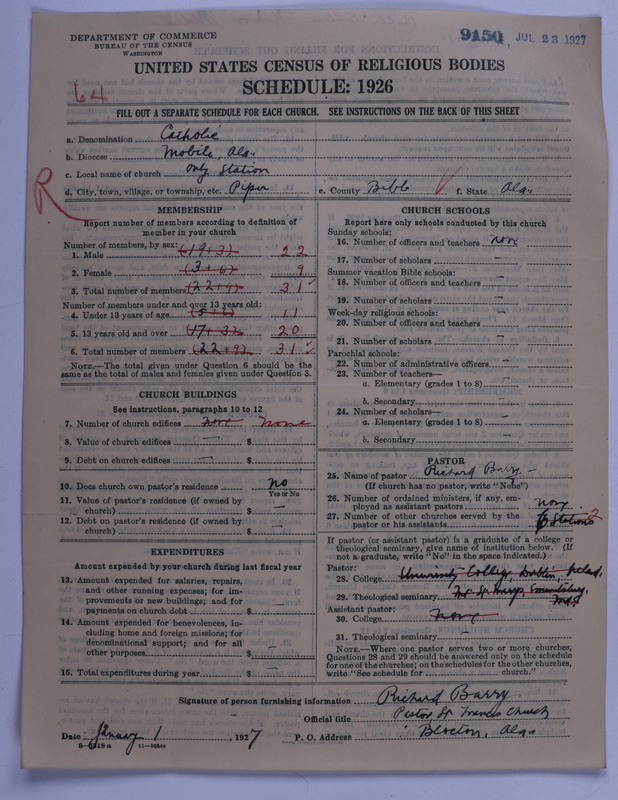 DEPARTMENT OF COMMERCE
BUREAU OF THE CENSUS
WASHINGTON
9150, JUL 23 1927
UNITED STATES CENSUS OF RELIGIOUS BODIES
SCHEDULE: 1926
64
FILL OUT A SEPARATE SCHEDULE FOR EACH CHURCH. SEE INSTRUCTIONS ON THE BACK OF THIS SHEET
a. Denomination Catholic
b. Diocese Mobile, Ala.
c. Local name of church only Station
d. City, town, village, or township, etc. Piper e. County Bibb f. State Ala.
R
MEMBERSHIP
Report number of members according to definition of
member in your church
Number of members, by sex:
1. Male (19+3) 22
2. Female (3+6) 9
3. Total number of members (22+9) 31
Number of members under and over 13 years old:
4. Under 13 years of age (5+6) 11
5. 13 years old and over (17+3) 20
6. Total number of members (22+9) 31
NOTE.—The total given under Question 6 should be the
same as the total of males and females given under Question 3.
CHURCH BUILDINGS
See instructions, paragraphs 10 to 12
7. Number of church edifices none none
8. Value of church edifices — $
9. Debt on church edifices — $
10. Does church own pastor's residence no
Yes or No
11. Value of pastor's residence (if owned by
church) $ —
12. Debt on pastor's residence (if owned by
church) $ —
EXPENDITURES
Amount expended by your church during last fiscal year
13. Amount expended for salaries, repairs,
and other running expenses; for im-
provements or new buildings; and for
payments on church debt $ —
14. Amount expended for benevolences, in-
cluding home and foreign missions; for
denominational support; and for all
other purposes $ —
15. Total expenditures during year $ —
CHURCH SCHOOLS
Report here only schools conducted by this church
Sunday schools:
16. Number of officers and teachers none
17. Number of scholars —
Summer vacation Bible schools:
18. Number of officers and teachers —
19. Number of scholars —
Week-day religious schools:
20. Number of officers and teachers —
21. Number of scholars —
Parochial schools:
22. Number of administrative officers —
23. Number of teachers—
a. Elementary (grades 1 to 8) —
b. Secondary —
24. Number of scholars—
a. Elementary (grades 1 to 8) —
b. Secondary —
PASTOR
25. Name of pastor Richard Barry —
(If church has no pastor, write "None")
26. Number of ordained ministers, if any, em-
ployed as assistant pastors none
27. Number of other churches served by the
pastor or his assistants Stations 2
If pastor (or assistant pastor) is a graduate of a college or
theological seminary, give name of institution below. (If
not a graduate, write "No" in the space indicated.)
Pastor:
28. College University College, Dublin, Ireland.
29. Theological seminary Mt. St. Marys, Emmitsburg, Md.
Assistant pastor:
30. College none
31. Theological seminary —
NOTE.—Where one pastor serves two or more churches,
Questions 28 and 29 should be answered only on the schedule
for one of the churches; on the schedules for the other churches,
write "See schedule for church."
Signature of person furnishing information Richard Barry
Official title Pastor St. Francis Church
Date January 1, 1927 P. O. Address Blocton, Ala.
8—5218a 11—90544